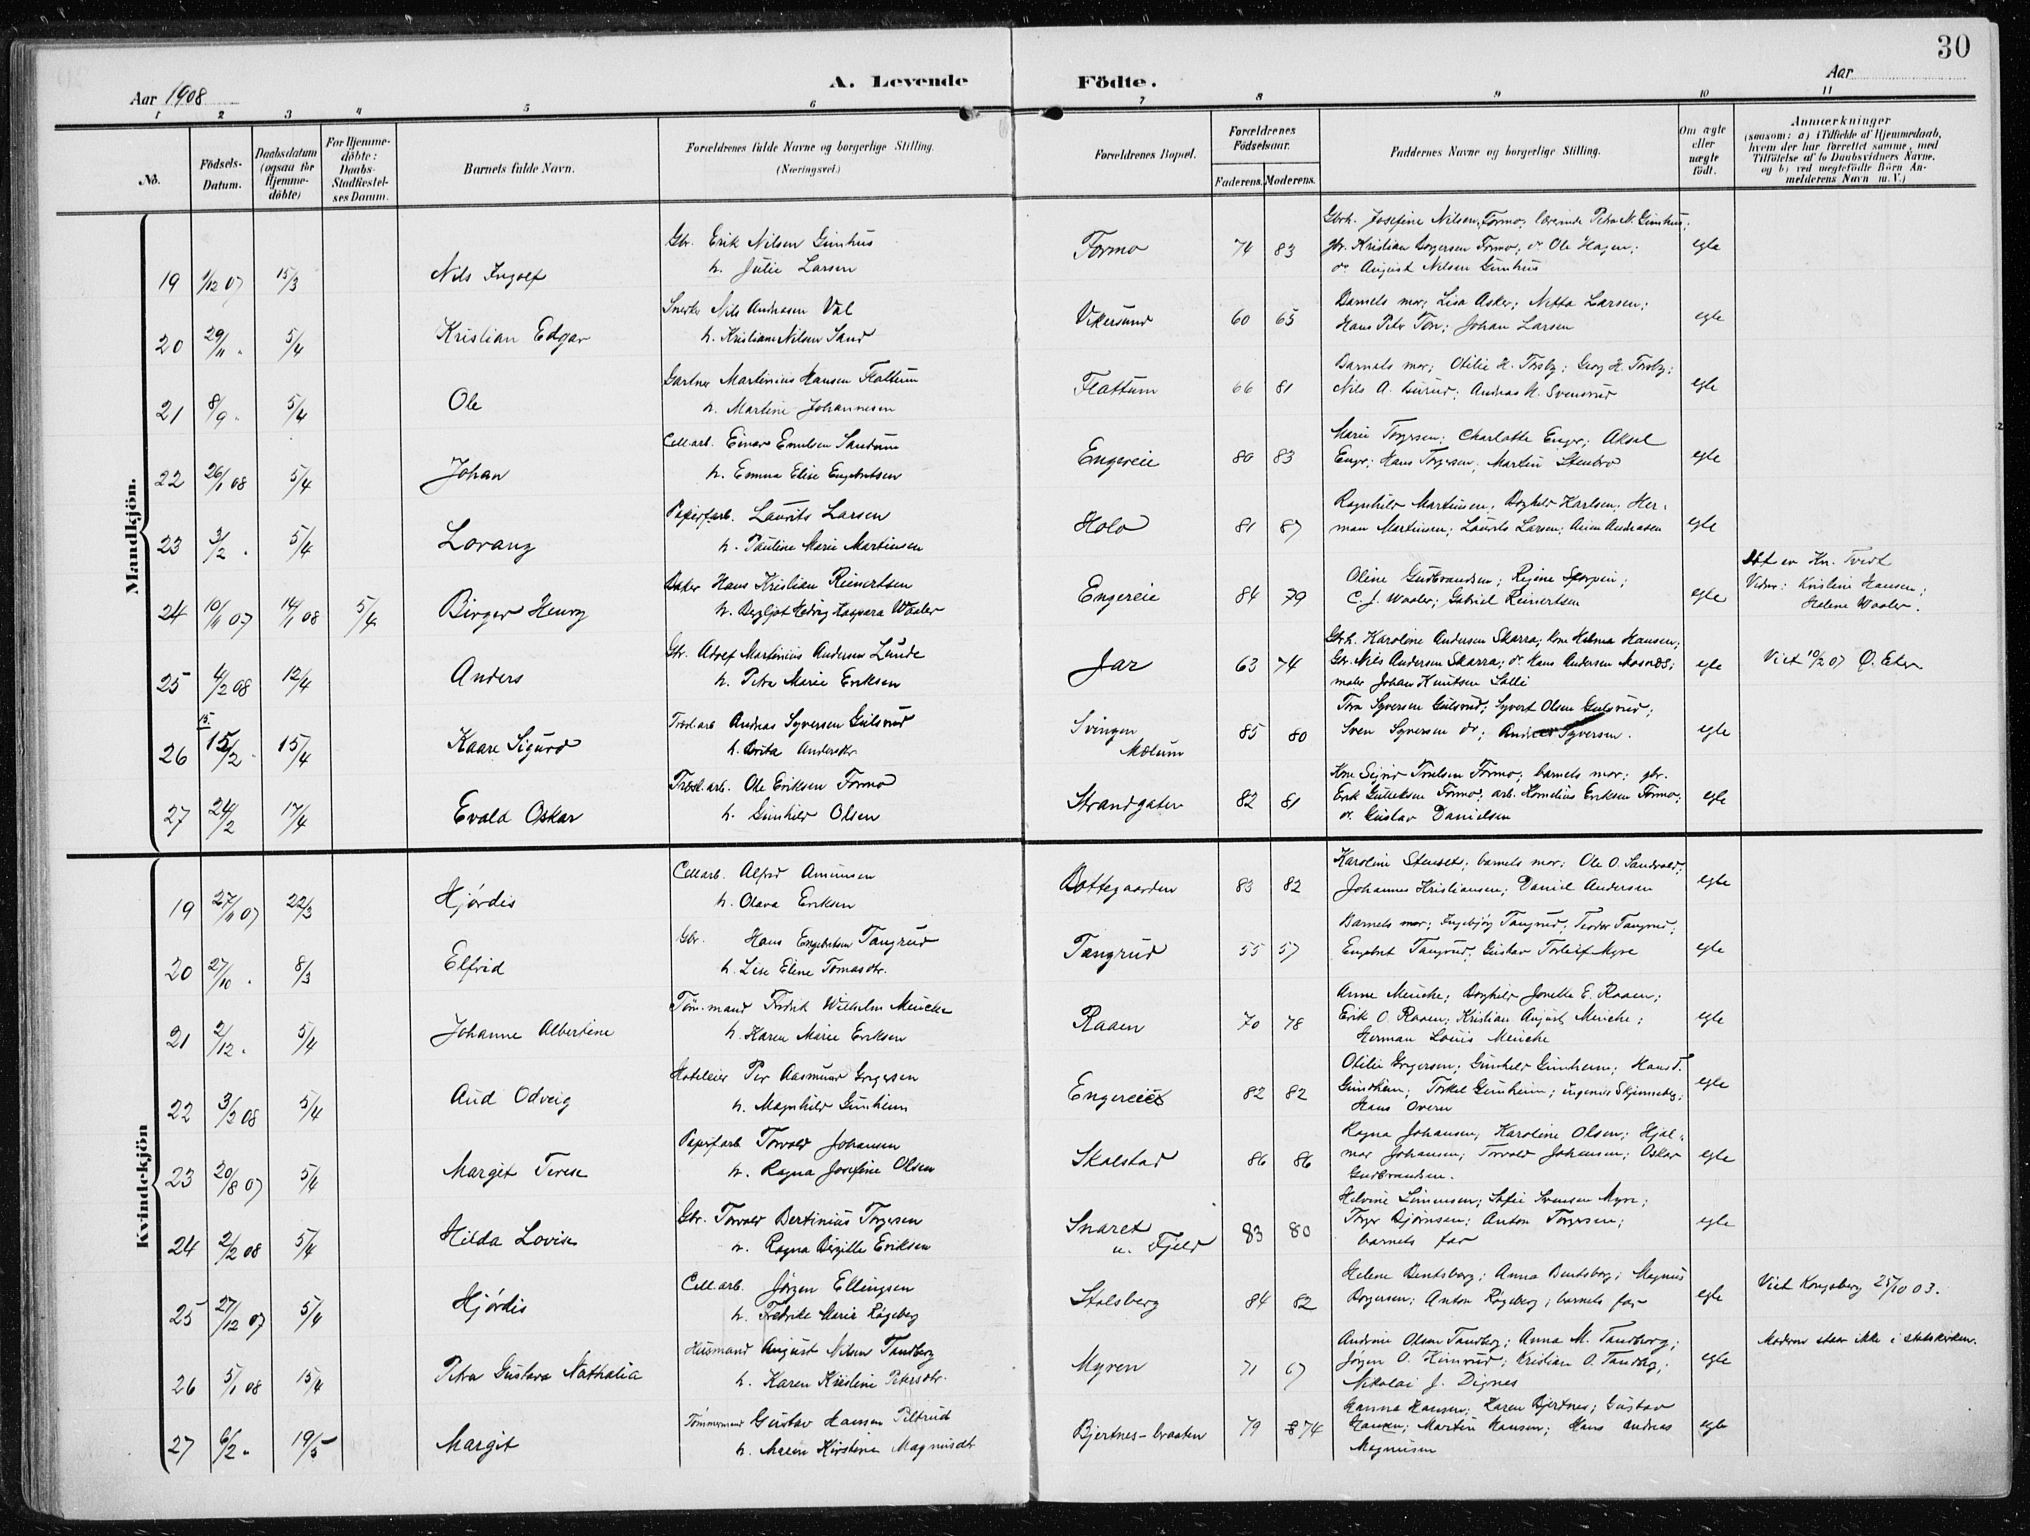 30
A. Levende Födte.
Aar 1908
Aar
1 2 3 4 5 6 7 8 9 10 11
No.
Födsels-Datum.
Daabsdatum (ogsaa for Hjemmedöbte)
For Hjemmedöbte: Daabs-Stadfæstelses Datum.
Barnets fulde Navn.
Forældrenes fulde Navne og borgerlige Stilling. (Næringsvei.)
Forældrenes Bopæl.
Forældrenes Födselsaar.
Faderens. Moderens.
Faddernes Navne og borgerlige Stilling.
Om ægte eller uægte födt.
Anmærkninger
(saasom: a) i Tilfælde af Hjemmedaab, hvem der har forrettet samme, med Tilföielse af to Daabsvidners Navne, og b) ved uægtefödte Börn Anmelderens Navn m. V.)
Mandkjön.
19 1/12 07 15/3 Nils Ingolf
Gbr. Erik Nilsen Gunhus
h. Julie Larsen
Formo 74 83
Gbrh. Josefine Nilsen Formo; lærerinde Petra N. Gunhus;
gbr. Kristian Borgersen Formo; do Ole Hagen;
do August Nilsen Gunhus
egte
20 29/11 " 5/4 Kristian Edgar
Snedker Nils Andreasen Val
h. Kristiane Nilsen Sand
Vikersund 60 65
Barnets mor; Lisa Asker; Netta Larsen;
Hans Peter Ton; Johan Larsen
egte
21 8/9 " 5/4 Ole
Gartner Martinius Hansen Flattum
h. Martine Johannesen
Flattum 66 81
Barnets mor; Otilie H. Torsby; Georg H. Torsby;
Nils A. Burud; Andreas N. Svensrud
egte
22 26/1 08 5/4 Johan
Cell.arb. Einar Emilsen Sandum
h. Emma Elise Engebretsen
Engereie 80 83
Marie Torgersen; Charlotte Enger; Aksel
Enger; Hans Torgersen; Martin Stenbro
egte
23 3/2 " 5/4 Lorang
Papirfarb. Laurits Larsen
h. Pauline Marie Martinsen
Holo 81 87
Ragnhild Martinsen; Borghild Karlsen; Her-
man Martinsen; Laurits Larsen; Anton Andreasen
egte
24 10/11 07 14/1 08 5/4 Birger Henry
Baker Hans Kristian Reinertsen
h. Bergljot Hedvig Kaspara Waaler
Engereie 84 79
Oline Gudbrandsen; Regine Sporpen;
C. J. Waaler; Gabriel Reinertsen
egte
Døbt av Kn. Tvedt
Vidner: Kristine Hansen;
Helene Waaler.
25 4/2 08 12/4 Anders
Gbr. Adolf Martinius Andersen Lunde
h. Petra Marie Eriksen
Jar 63 74
Gbrh. Karoline Andersen Skarra; kone Helma Hansen;
Gbr. Nils Andersen Skarra; do Hans Andersen Aasnes;
maler Johan Knutsen Solli
egte
Viet 10/2 07 Ø. Eker
26 15. 15/2 " 15/4 Kaare Sigurd
Træsl.arb. Andreas Syversen Gulsrud
h. Berta Andersdtr.
Svingen
Modum
85 80
Tora Syversen Gulsrud; Syvert Olsen Gulsrud;
Sven Syversen do; Andreas Syversen.
egte
27 24/2 17/4 Evald Oskar
Træsl.arb. Ole Eriksen Formo
h. Gunhild Olsen
Strandgaten 82 81
Kone Sigrid Trulsen Formo; barnets mor; gbr.
Erik Gulliksen Formo; arb. Kornelius Eriksen Formo;
do. Gustav Danielsen
egte
Kvindekjön
19 27/11 07 22/3 Hjørdis
Cell.arb. Alfred Amunsen
h. Olava Eriksen
Bottegaarden 83 82
Karoline Stenset; barnets mor; Ole O. Sandvold;
Johannes Kristiansen; Daniel Andersen
egte
20 27/10 " 8/3 Elfrid
Gbr. Hans Engebretsen Tangrud
h. Lise Eline Tomasdtr.
Tangrud 55 57
Barnets mor; Ingebjørg Tangrud; Teodor Tangrud;
Engebret Tangrud; Gustav Torleif Myre
egte
21 2/12 " 5/4 Johanne Albertine
Tøm.mand Fredrik Wilhelm Meucke
h. Karen Marie Eriksen
Raaen 70 78
Anne Meuche; Borghild Jonette E. Raaen;
Erik O. Raaen; Kristian August Meuche;
Herman Louis Meuche
egte
22 3/2 08 5/4 Aud Odveig
Hoteleier Per Aasmund Gregersen
h. Magnhild Gunheim
Engereie 82 82
Otilie Gregersen; Gunhild Gunheim; Hans T.
Gundhein; Torkel Gunheim; ingeniør Skjønneberg;
Hans Overn
egte
23 20/8 07 5/4 Margit Terese
Papirfarb. Torvald Johansen
h. Ragna Josefine Olsen
Skalstad 86 86
Ragna Johansen; Karoline Olsen; Hjal-
mar Johansen; Torvald Johansen; Oskar
Gudbrandsen.
egte
24 2/2 08 5/4 Hilda Lovise
Gbr. Torvald Bertinius Torgersen
h. Ragna Birgitte Eriksen
Snaret
u. Fjeld
83 80
Helvine Simensen; Sofie Svensen Myre;
Torger Bjørnsen; Anton Torgersen;
barnets far
egte
25 27/12 07 5/4 Hjørdis
Cell.arb. Jørgen Ellingsen
h. Fredrikke Marie Røgeberg
Stalsberg 84 82
Helene Bentsberg; Anna Bentsberg; Magnus
Borgersen; Anton Røgeberg; barnets far
egte
Viet Kongsberg 25/10 03.
26 5/1 08 15/4 Petra Gustava Nathalia
Husmand August Nilsen Tandberg
h. Karen Kristine Petersdtr.
Myren 71 67
Andrine Olsen Tandberg; Anna M. Tandberg;
Jørgen O. Himrud; Kristian O. Tandberg;
Nikolai J. Dignes
egte
Moderen staar ikke i statskirken.
27 6/2 " 19/5 Margit
Tømmermand Gustav Hansen Piltrud
h. Maren Kirstine Magnusdt
Bjertnes-braaten 79 74
Hanna Hansen; Karen Bjertnes; Gustav
Hansen; Martin Hansen; Hans Andreas
Magnusen
egte